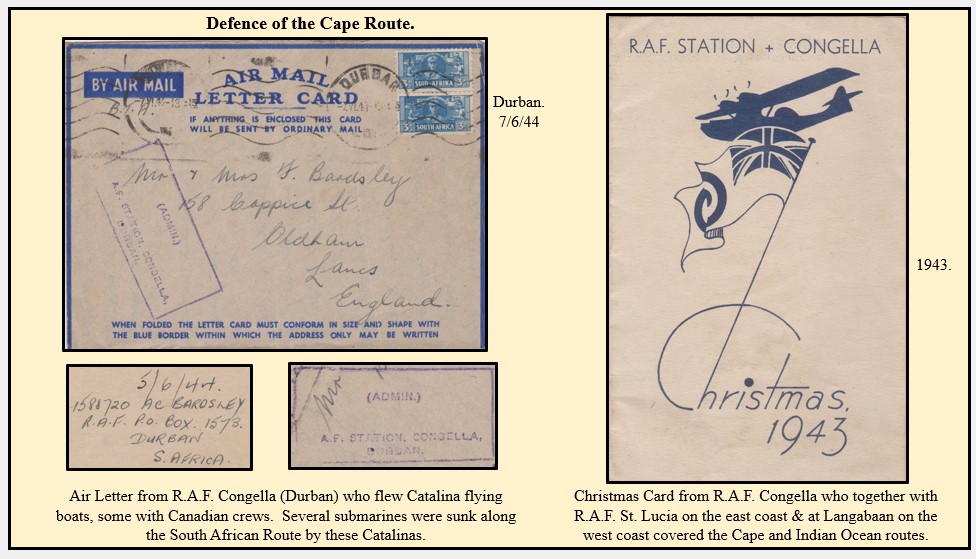 Defence of the Cape Route.
BY AIR MAIL
AIR MAIL
LETTER CARD
IF ANYTHING IS ENCLOSED THIS CARD
WILL BE SENT BY ORDINARY MAIL
DURBAN
SOUTH AFRICA
SOUTH AFRICA
Mr & Mrs F. Bardsley
158 Coppice St.
Oldham
Lancs
England.
(ADMIN.)
A.F. STATION, CONGELLA,
DURBAN.
WHEN FOLDED THE LETTER CARD MUST CONFORM IN SIZE AND SHAPE WITH
THE BLUE BORDER WITHIN WHICH THE ADDRESS ONLY MAY BE WRITTEN
Durban.
7/6/44
5/6/44.
1588720 AC BARDSLEY
R.A.F. P.O. BOX. 1573.
DURBAN
S. AFRICA.
Mr
(ADMIN.)
A.F. STATION, CONGELLA,
DURBAN.
Air Letter from R.A.F. Congella (Durban) who flew Catalina flying
boats, some with Canadian crews. Several submarines were sunk along
the South African Route by these Catalinas.
R.A.F. STATION + CONGELLA
Christmas.
1943
1943.
Christmas Card from R.A.F. Congella who together with
R.A.F. St. Lucia on the east coast & at Langabaan on the
west coast covered the Cape and Indian Ocean routes.